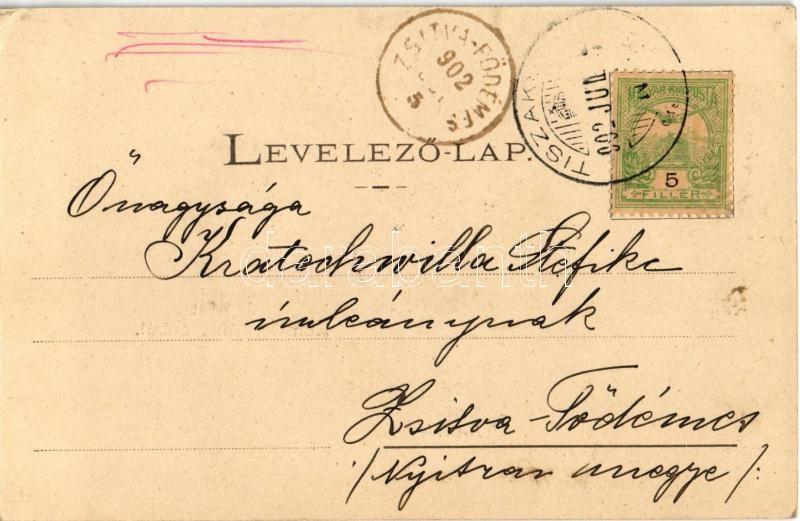 ZSITVA-FÖDÉMES
902
5
TISZAK
902 JUL
MAGYAR KIR. POSTA
5
FILLÉR
LEVELEZŐ-LAP.
Őnagysága
Kratochwilla Stefike
darabanth
úrleánynak
Zsitva-Födémes
/Nyitra megye/: